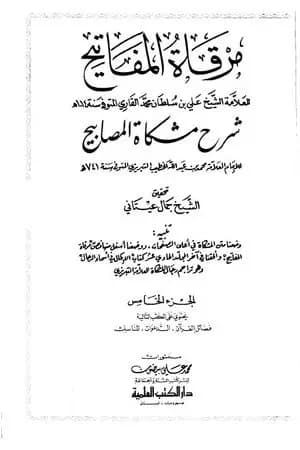 مرقاة المفاتيح
للعلامة الشيخ علي بن سلطان محمد القاري المتوفى سنة ١٠١٤هـ
شرح مشكاة المصابيح
للإمام العلامة محمد بن عبد الله الخطيب التبريزي المتوفى سنة ٧٤١هـ
تحقيق
الشيخ جمال عيتاني
تنبيه:
وضعنا متن المشكاة في أعلى الصفحات، ووضعنا أسفل منها نص مرقاة
المفاتيح، وألحقنا في آخر المجلد الحادي عشر كتاب الإكمال في أسماء الرجال
وهو تراجم رجال المشكاة للعلامة التبريزي
الجزء الخامس
يحتوي على الكتب التالية
فضائل القرآن ـ الدعوات ـ المناسك
منشورات
محمد علي بيضون
دار الكتب العلمية